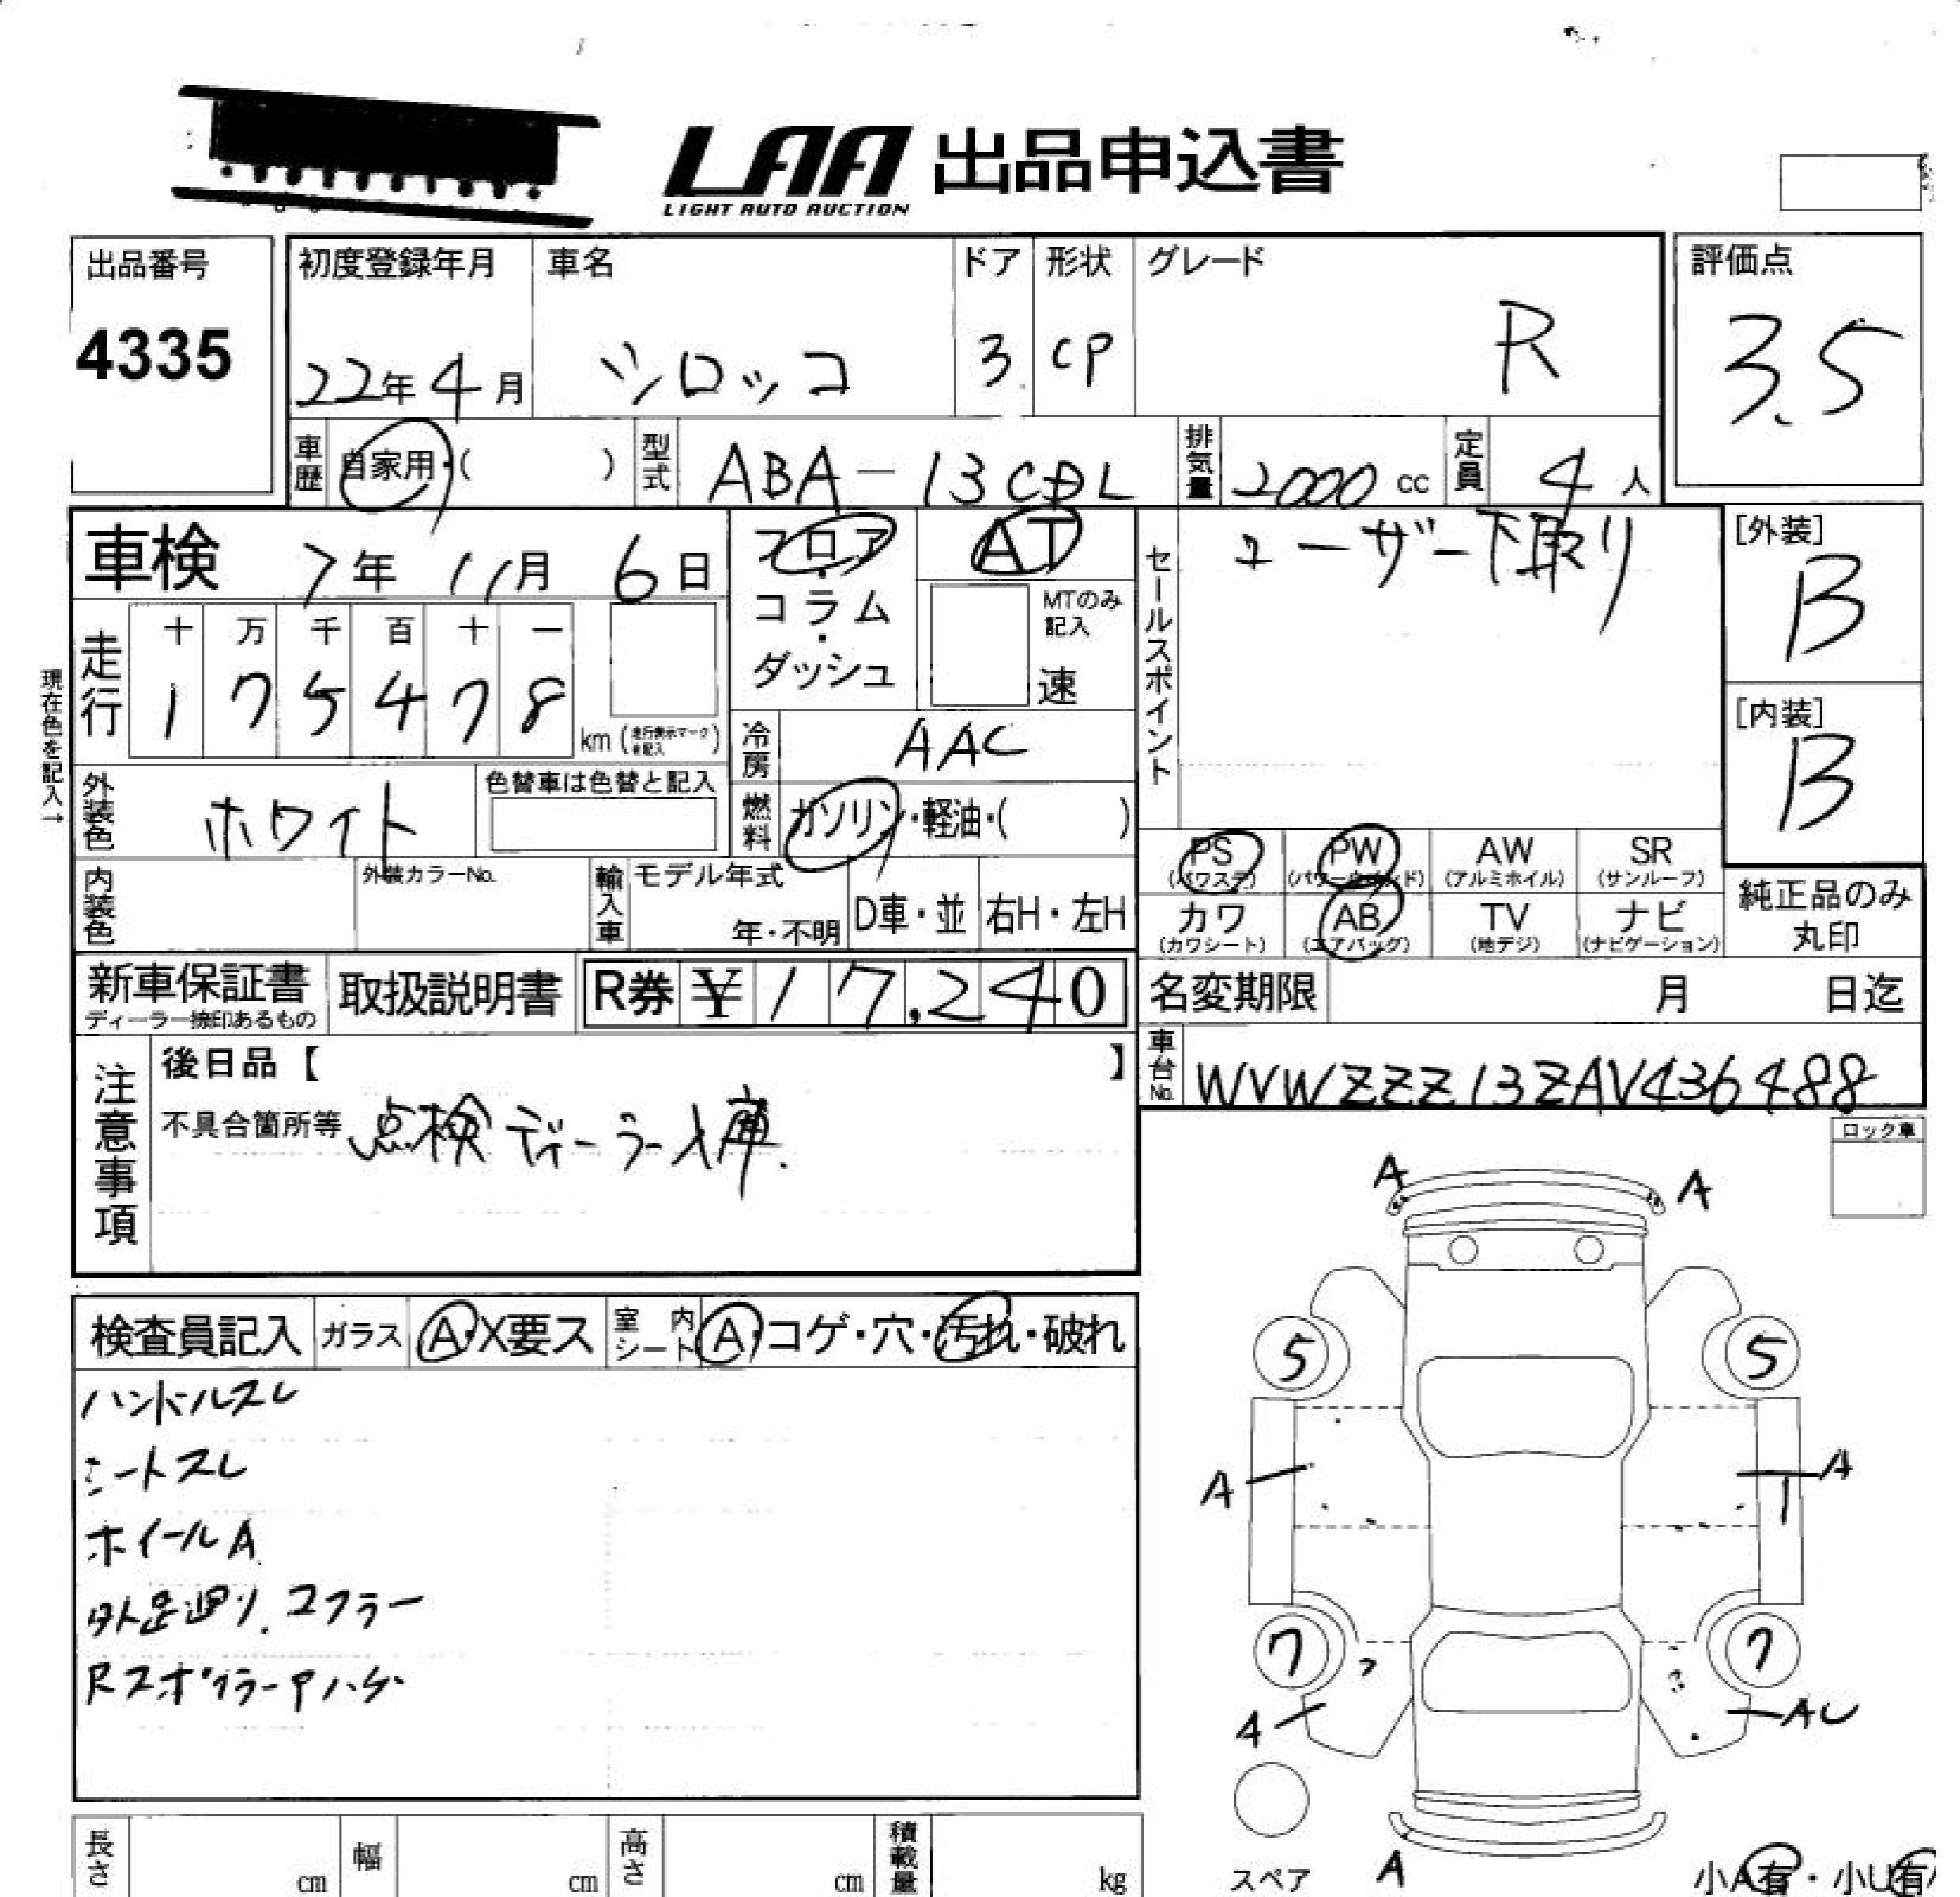 LAA 出品申込書
LIGHT AUTO AUCTION
出品番号
4335
初度登録年月 車名 ドア 形状 グレード
22年4月 シロッコ 3 CP R
評価点
3.5
車歴 自家用・( ) 型式 ABA-13CDL 排気量 2000 cc 定員 4人
車検 7年11月6日
フロア・コラム・ダッシュ
AT
MTのみ記入
速
セールスポイント
ユーザー下取り
[外装]
B
[内装]
B
現在色を記入→
走行 十 万 千 百 十 一
1 7 5 4 7 8 km (走行表示マークを記入)
冷房 AAC
外装色 ホワイト 色替車は色替と記入
燃料 ガソリン・軽油・( )
内装色 外装カラーNo. 輸入車 モデル年式 年・不明 D車・並 右H・左H
PS (パワステ) PW (パワーウィンド) AW (アルミホイル) SR (サンルーフ)
カワ (カワシート) AB (エアバッグ) TV (地デジ) ナビ (ナビゲーション)
純正品のみ丸印
新車保証書 ディーラー捺印あるもの 取扱説明書 R券 ¥17,240
名変期限 月 日迄
車台No. WVWZZZ13ZAV436488
注意事項
後日品【 】
不具合箇所等 点検ディーラー入庫.
ロック車
検査員記入 ガラス A・X要ス 室内シート A・コゲ・穴・汚れ・破れ
ハンドルスレ
シートスレ
ホイールA
外足廻り.マフラー
RスポイラーPハゲ
A A
5 5
A A
7 7
A AU
スペア A 小A有・小U有
長さ cm 幅 cm 高さ cm 積載量 kg